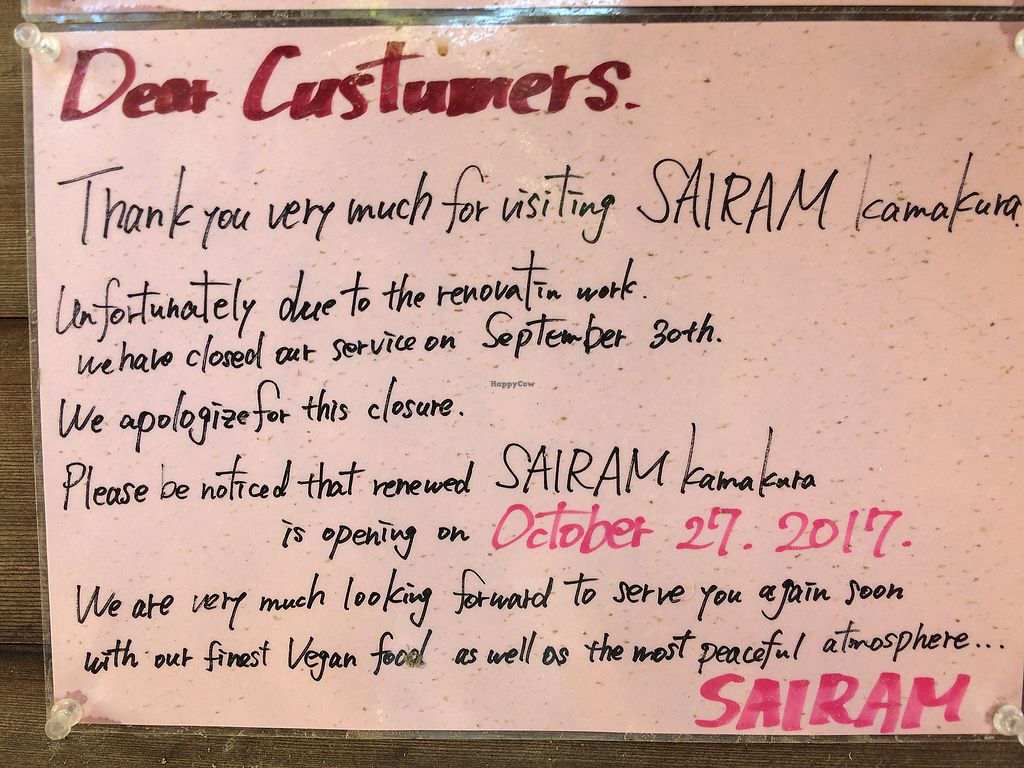 Dear Custumers.
Thank you very much for visiting SAIRAM kamakura.
Unfortunately due to the renovatin work.
we have closed our service on September 30th.
HappyCow
We apologize for this closure.
Please be noticed that renewed SAIRAM kamakura
is opening on October 27. 2017.
We are very much looking forward to serve you again soon
with our finest Vegan food as well as the most peaceful atmosphere...
SAIRAM